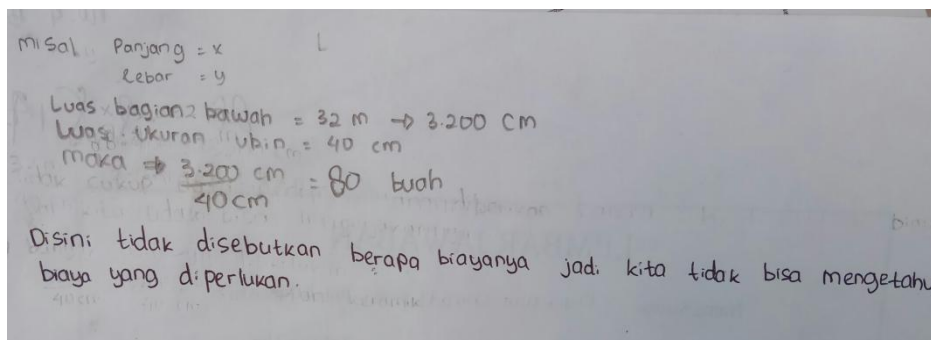 misal Panjang = x
Lebar = y
Luas bagian2 bawah = 32 m → 3.200 cm
Luas ukuran ubin = 40 cm
maka ⇒ 3.200 cm / 40 cm = 80 buah
Disini tidak disebutkan berapa biayanya jadi kita tidak bisa mengetahu
biaya yang diperlukan.